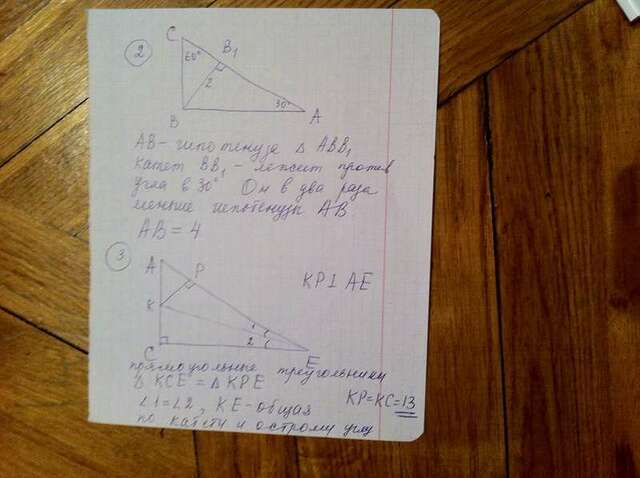 2
C
B1
60°
2
30°
B
A
AB - гипотенуза Δ ABB1
Катет BB1 - лежит против
угла в 30° Он в два раза
меньше гипотенузы AB
AB = 4
3
A
P
KP⊥AE
K
1
2
C
E
прямоугольные треугольники
Δ KCE = Δ KPE
KP=KC=13
∠1=∠2, KE-общая
по катету и острому углу